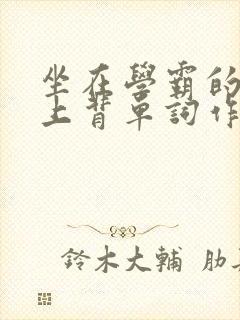 坐在學霸的
上背單詞作
鈴木大輔 肋